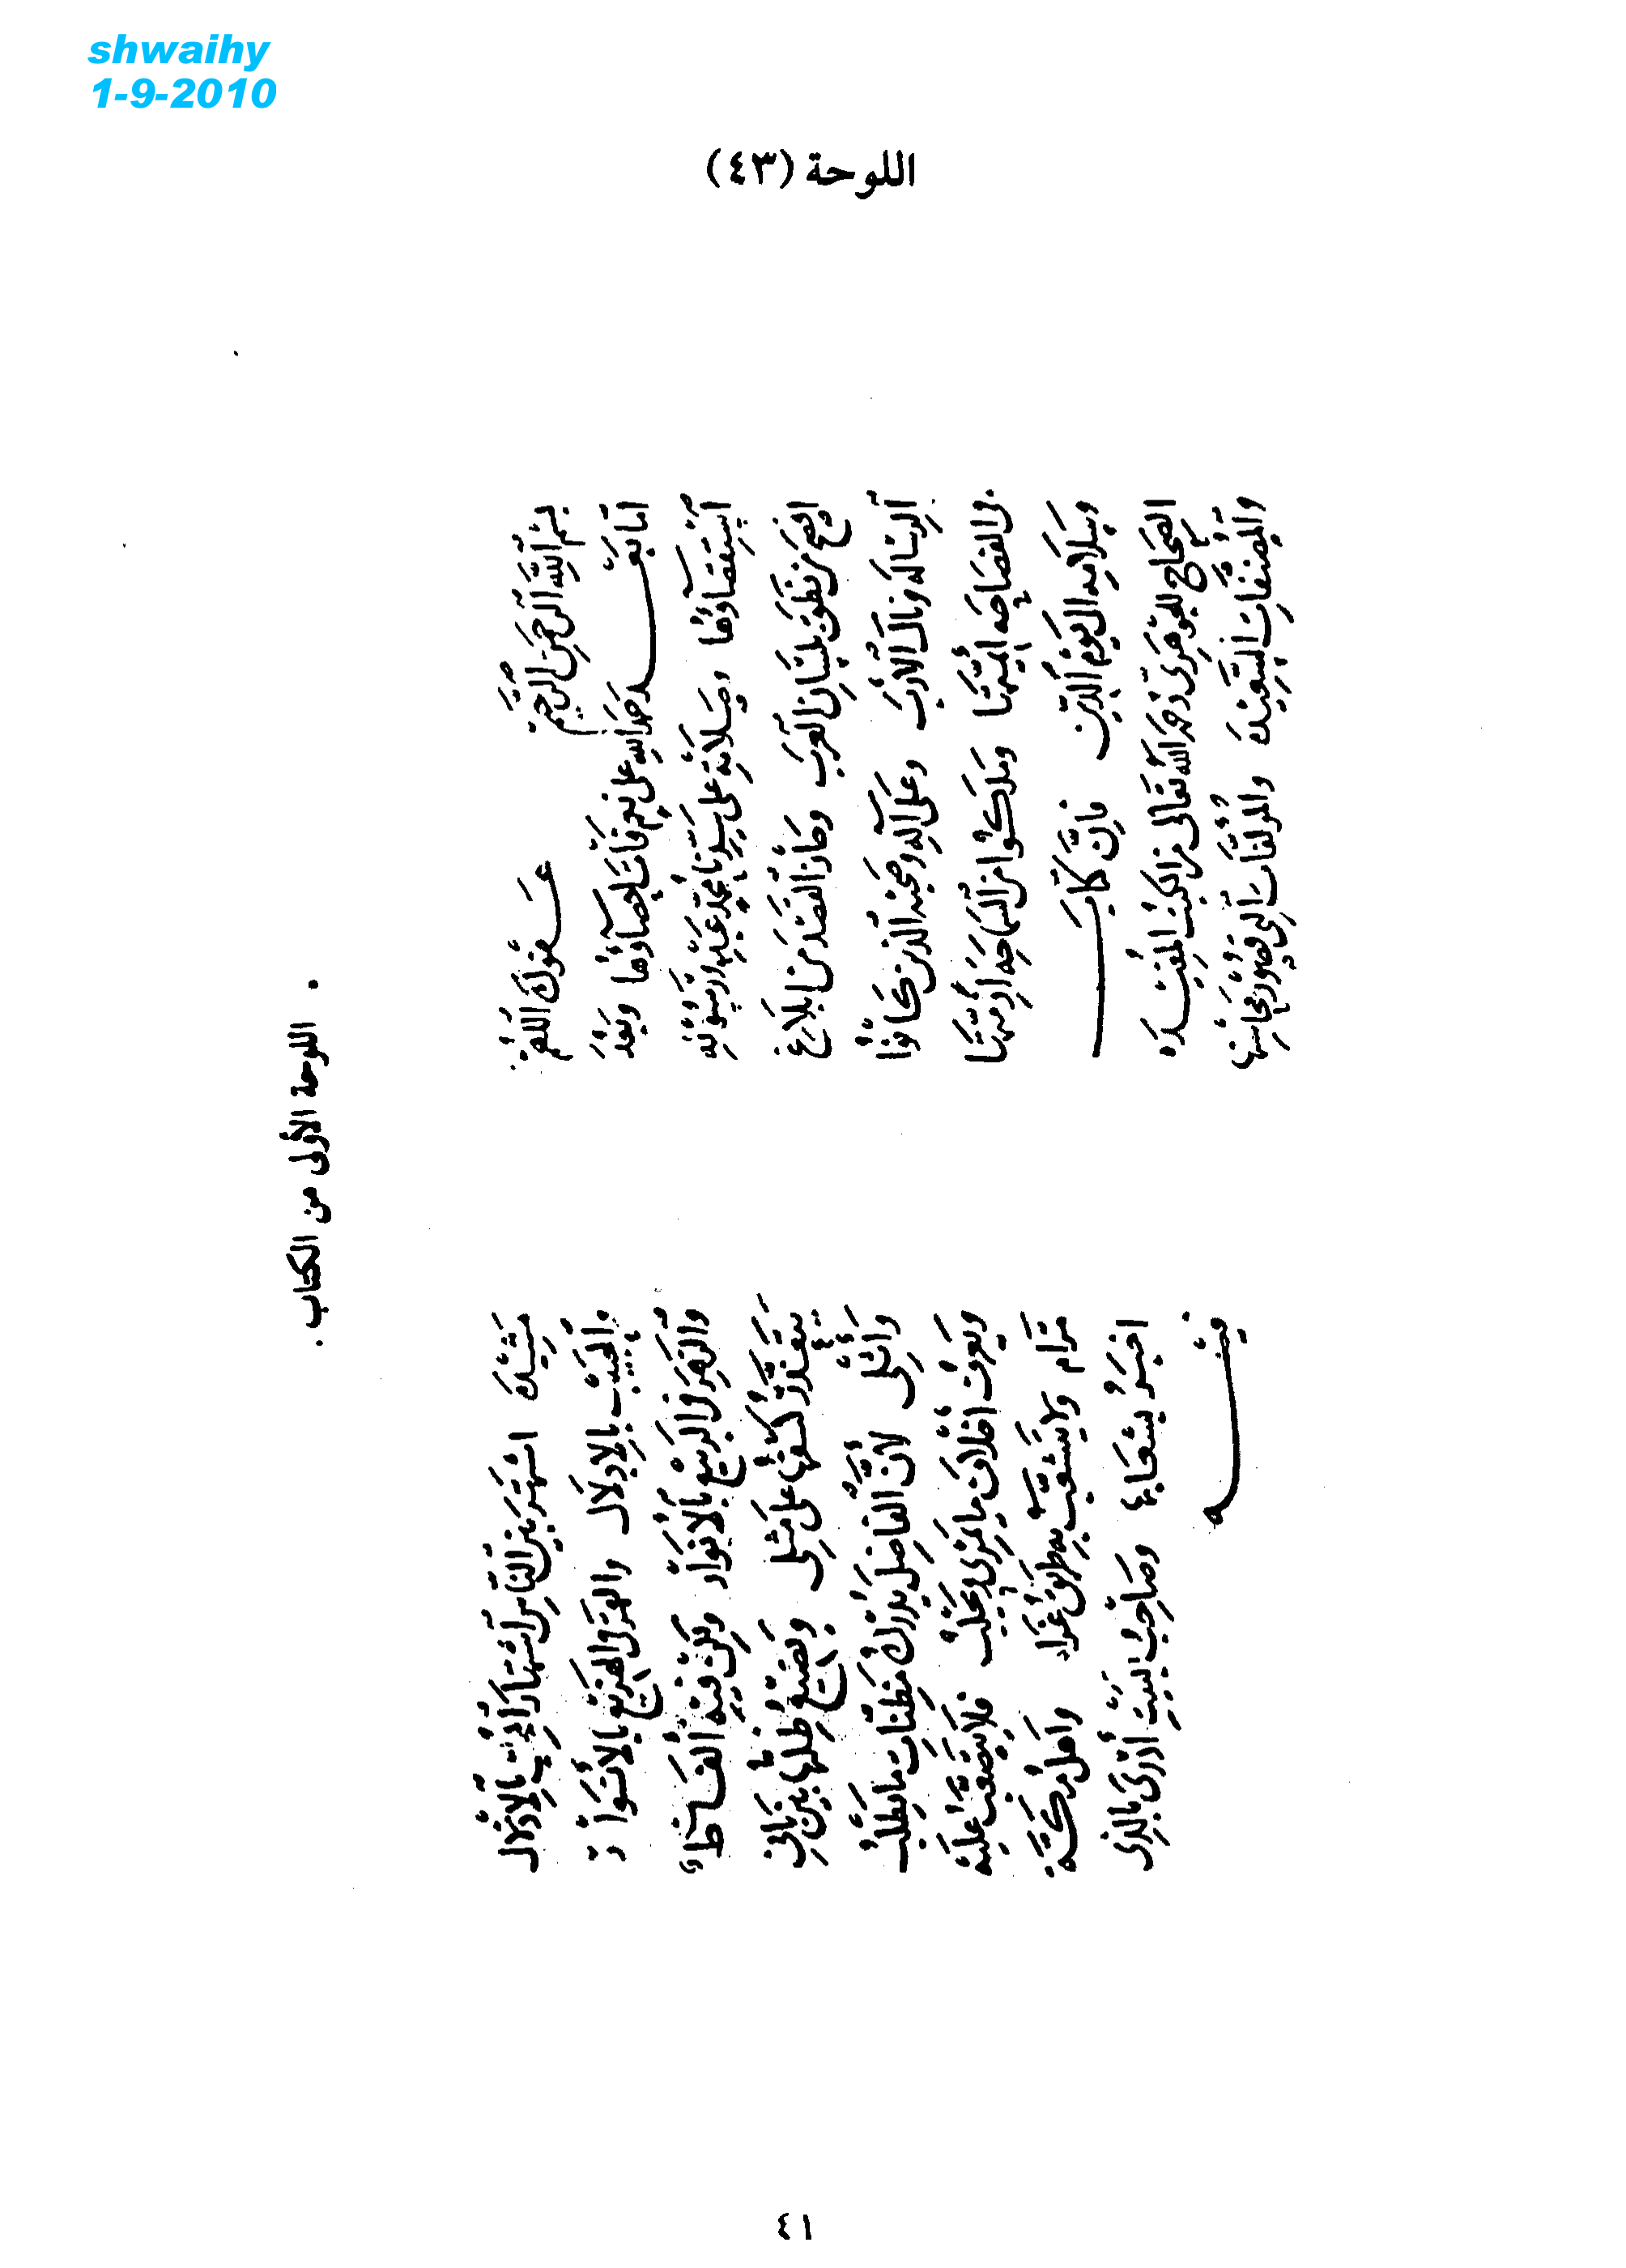 shwaihy
1-9-2010
اللوحة (٤٣)
بسم الله الرحمن الرحيم عونك اللهم
اما بعد حمد الله على نعم فات احصاؤها وبعد
استقصاؤها وصلاته على سيدنا محمد عبده ورسوله
افصح من نطق بلسان العرب وحاز القصد من ابلاغ
الرسالة ونال الارب وعلى آله وصحبه الذين كانوا
في الفصاحه ايمتها وملكوا من السماحه ازمتها
وسلامه الى يوم الدين فان كتاب
الصحاح للجوهري رحمه الله تعالى من الكتب المفيده
والمصنفات السعيده والمولفات التي محاسنها
مشيده اشتهر بين الناس اشتهار المحب بالاذلال
والحبيب بالادلال والعرف
والزهر في الربيع بالانوار ولكن فيه الفاظ
على مثلي ويصنع ظلها بين باني
واثلي لان الفاضل يدرك مظنات ما يطلب
ويعرف اخلاف ما يمرى ويحلب فلا يتصعب عليه
مرام ولا يتشعب به طريق غرام واهل مكة
اخبر بشعابها وصاحب البيت أدرى بالذي
فيه
اللوحة الأولى من الكتاب .
٤١